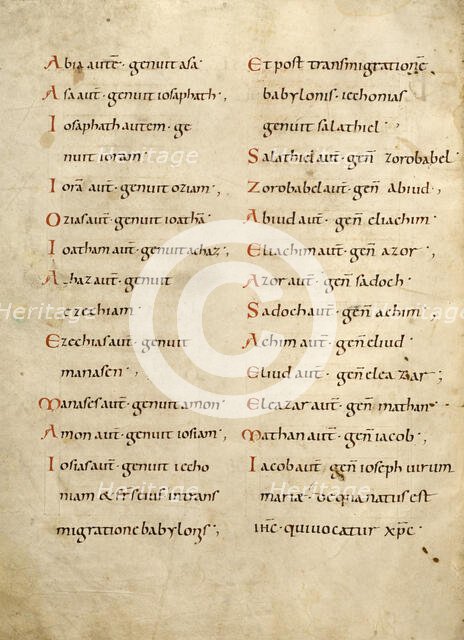 Abia autē · genuit asa
Asa aut̄ · genuit iosaphath ;
Iosaphath autem · ge
nuit ioram ·
Iorā aut̄ · genuit oziam ;
Ozias aut̄ · genuit ioathā
Ioatham aut̄ · genuit achaz ;
Achaz aut̄ · genuit
ezechiam ·
Ezechias aut̄ · genuit
manasen ;
Manases aut̄ · genuit amon
Amon aut̄ · genuit iosiam ;
Iosias aut̄ · genuit iecho
niam & fr̄s eius in trans
migratione babylonis ;
Et post transmigrationē
babylonis · iechonias
genuit salathiel ·
Salathiel aut̄ · geñ zorobabel
Zorobabel aut̄ · geñ abiud ;
Abiud aut̄ · geñ eliachim ·
Eliachim aut̄ · geñ azor ;
Azor aut̄ · geñ sadoch ·
Sadoch aut̄ · geñ achim ;
Achim aut̄ · geñ eliud
Eliud aut̄ · geñ eleazar ;
Eleazar aut̄ · geñ mathan
Mathan aut̄ · geñ iacob ;
Iacob aut̄ · geñ ioseph uirum
mariæ · de qua natus est
ih̄c · qui uocatur xp̄c ·
Heritage
Heritage
Heritage
Heritage
Heritage
©